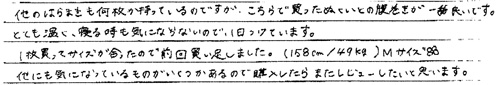 他のはらまきも何枚か持っているのですが、こちらで買ったぬくいとの腹巻きが一番良いです。
とても温く、寝る時も気にならないので、1日つけています。
1枚買ってサイズが合ったので前回買い足しました。(158cm/49kg)Mサイズ
他にも気になっているものがいくつかあるので購入したらまたレビューしたいと思います。